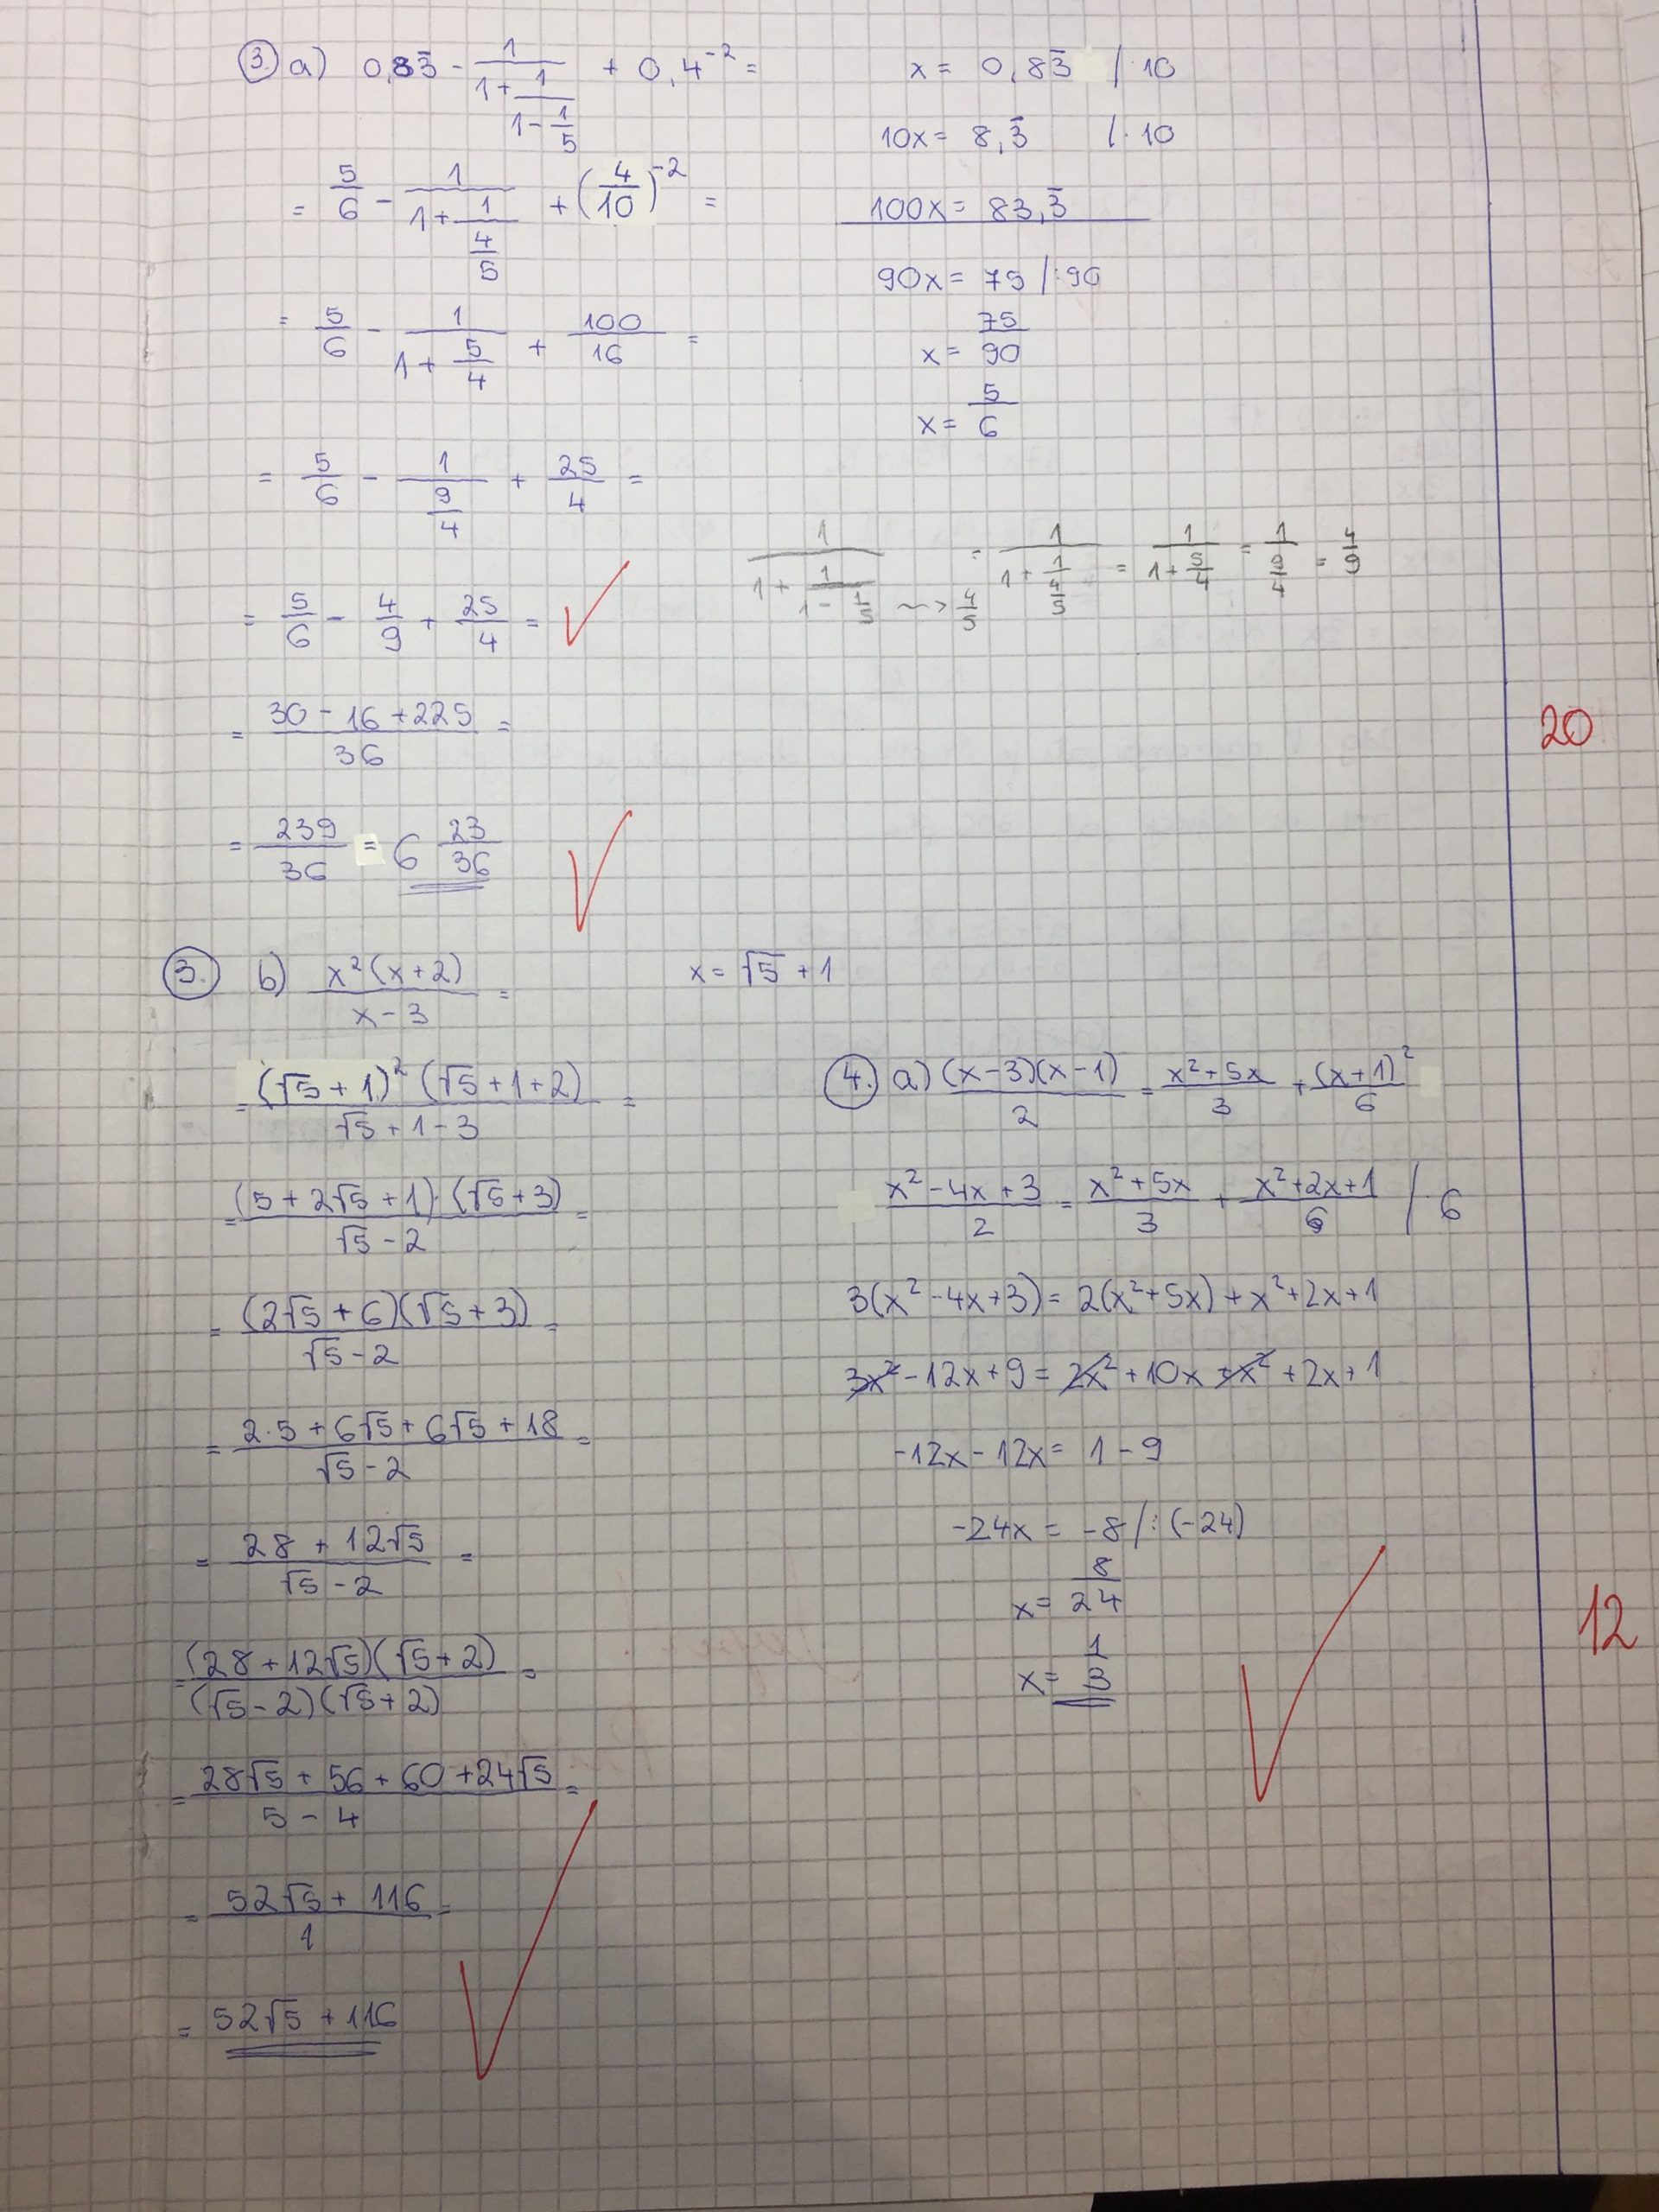 3. a) 0,83̄ - 1/(1+1/(1-1/5)) + 0,4^-2 =
= 5/6 - 1/(1+1/(4/5)) + (4/10)^-2 =
= 5/6 - 1/(1+5/4) + 100/16 =
= 5/6 - 1/(9/4) + 25/4 =
= 5/6 - 4/9 + 25/4 =
= (30-16+225)/36 =
= 239/36 = 6 23/36
x = 0,83̄ /·10
10x = 8,3̄ /·10
100x = 83,3̄
90x = 75 /:90
x = 75/90
x = 5/6
1/(1+1/(1-1/5)) ~> 4/5 = 1/(1+1/(4/5)) = 1/(1+5/4) = 1/(9/4) = 4/9
20
3. b) x²(x+2)/(x-3) = x = √5 + 1
= (√5+1)²(√5+1+2)/(√5+1-3) =
= (5+2√5+1)·(√5+3)/(√5-2) =
= (2√5+6)(√5+3)/(√5-2) =
= (2·5+6√5+6√5+18)/(√5-2) =
= (28+12√5)/(√5-2) =
= (28+12√5)(√5+2)/((√5-2)(√5+2)) =
= (28√5+56+60+24√5)/(5-4) =
= (52√5+116)/1 =
= 52√5+116
4. a) (x-3)(x-1)/2 = (x²+5x)/3 + (x+1)²/6
(x²-4x+3)/2 = (x²+5x)/3 + (x²+2x+1)/6 /·6
3(x²-4x+3) = 2(x²+5x)+x²+2x+1
3x²-12x+9 = 2x²+10x+x²+2x+1
-12x-12x = 1-9
-24x = -8 /:(-24)
x = 8/24
x = 1/3
12